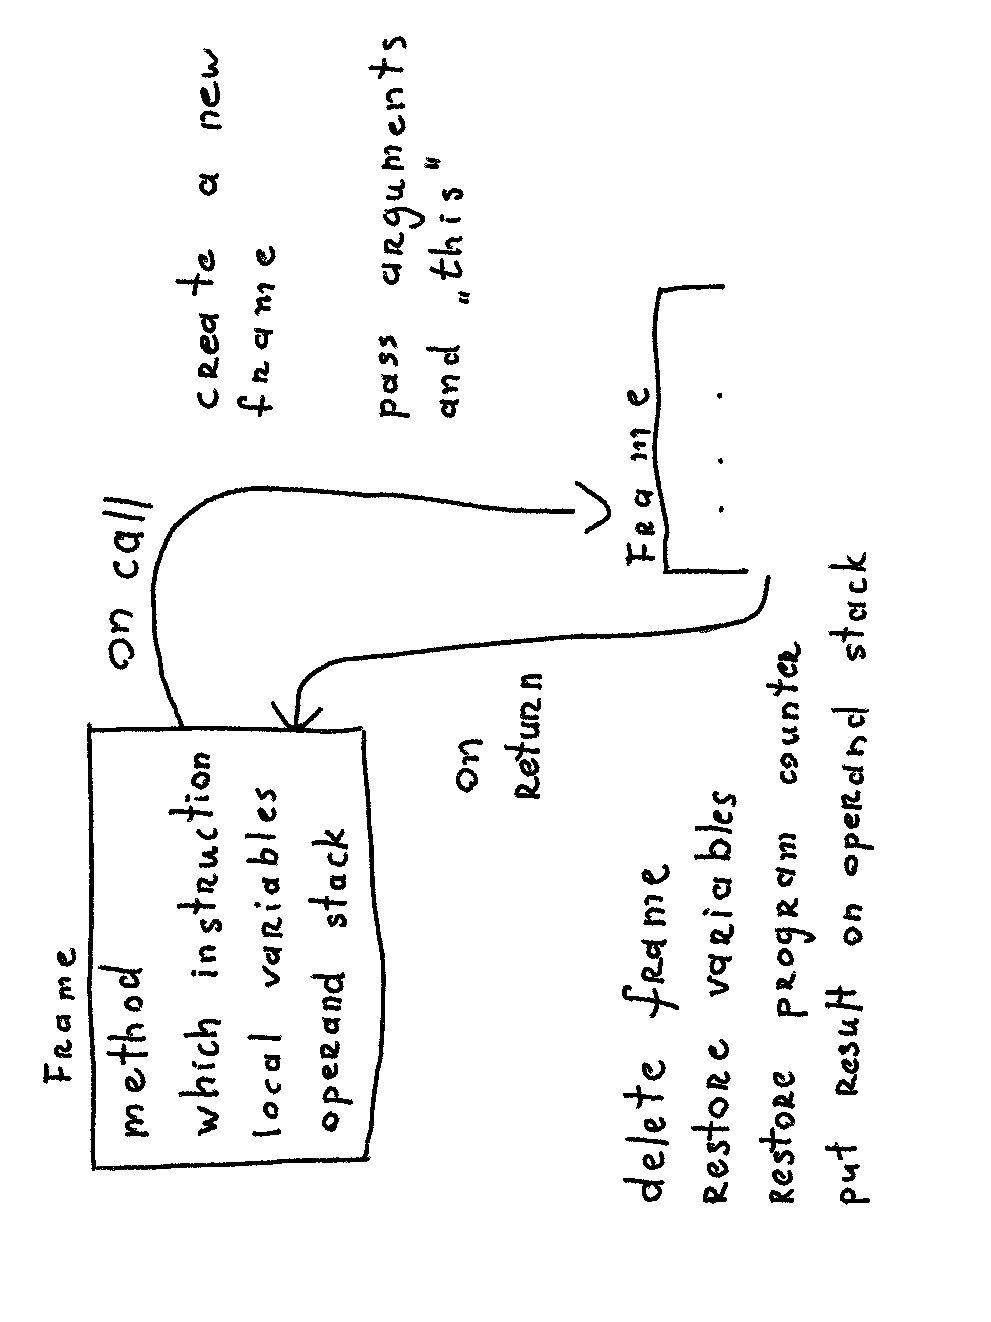 Frame
method
which instruction
local variables
operand stack
on call
create a new
frame
pass arguments
and „this"
Frame
. . .
on
Return
delete frame
Restore variables
Restore program counter
put Result on operand stack